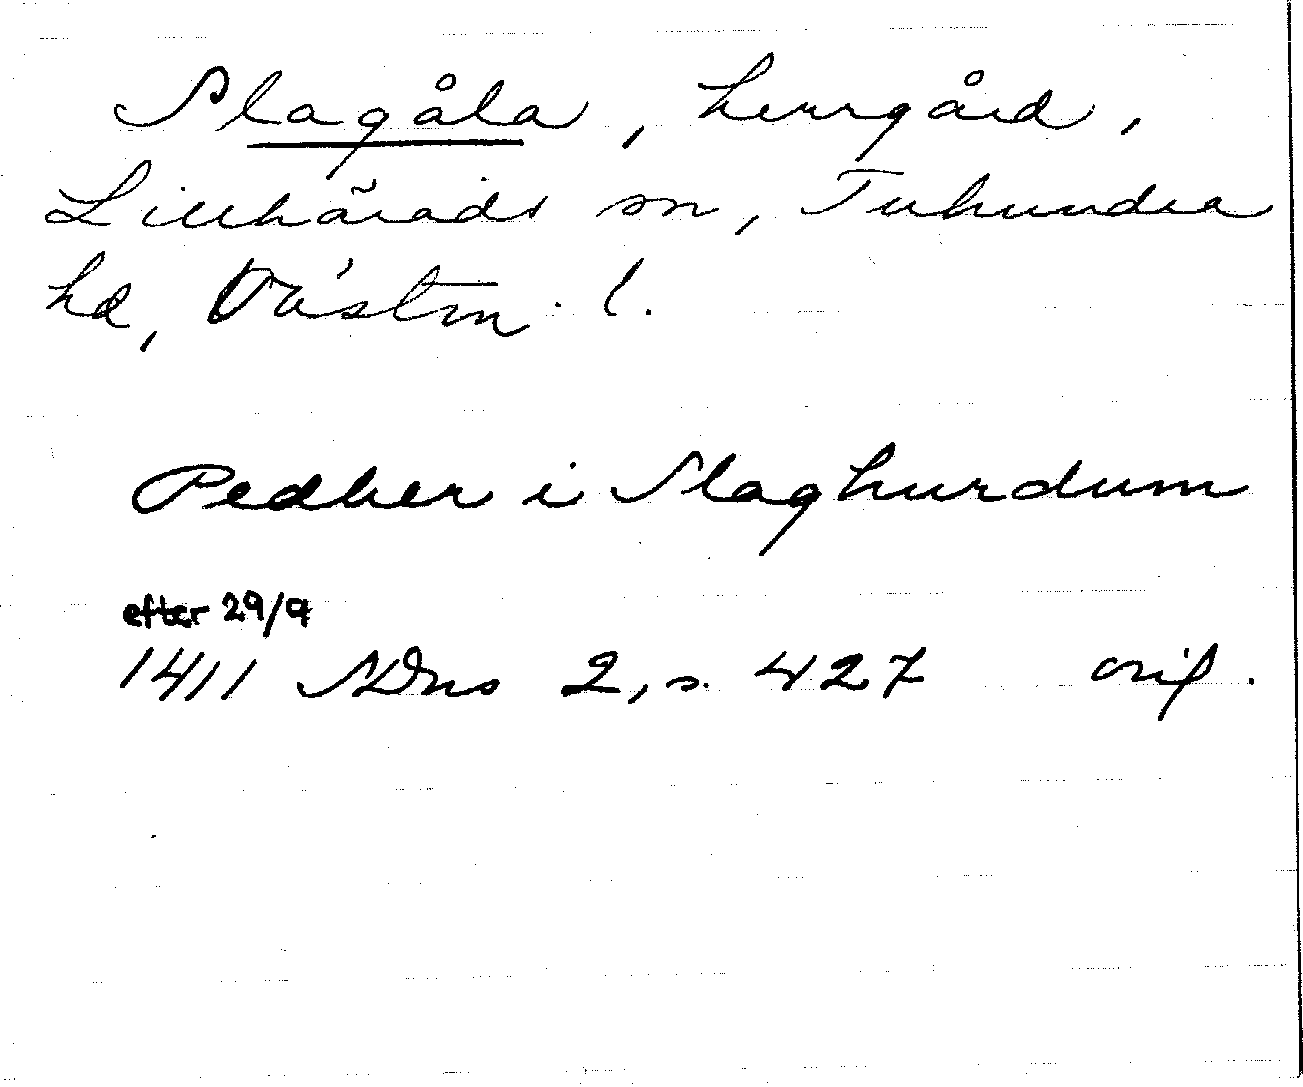 Slagåla, herrgård,
Lillhärads sn, Tuhundra
hd, Västm. l.
Pedher i Slaghurdum
efter 29/9
1411 SDns 2, s. 427 orig.